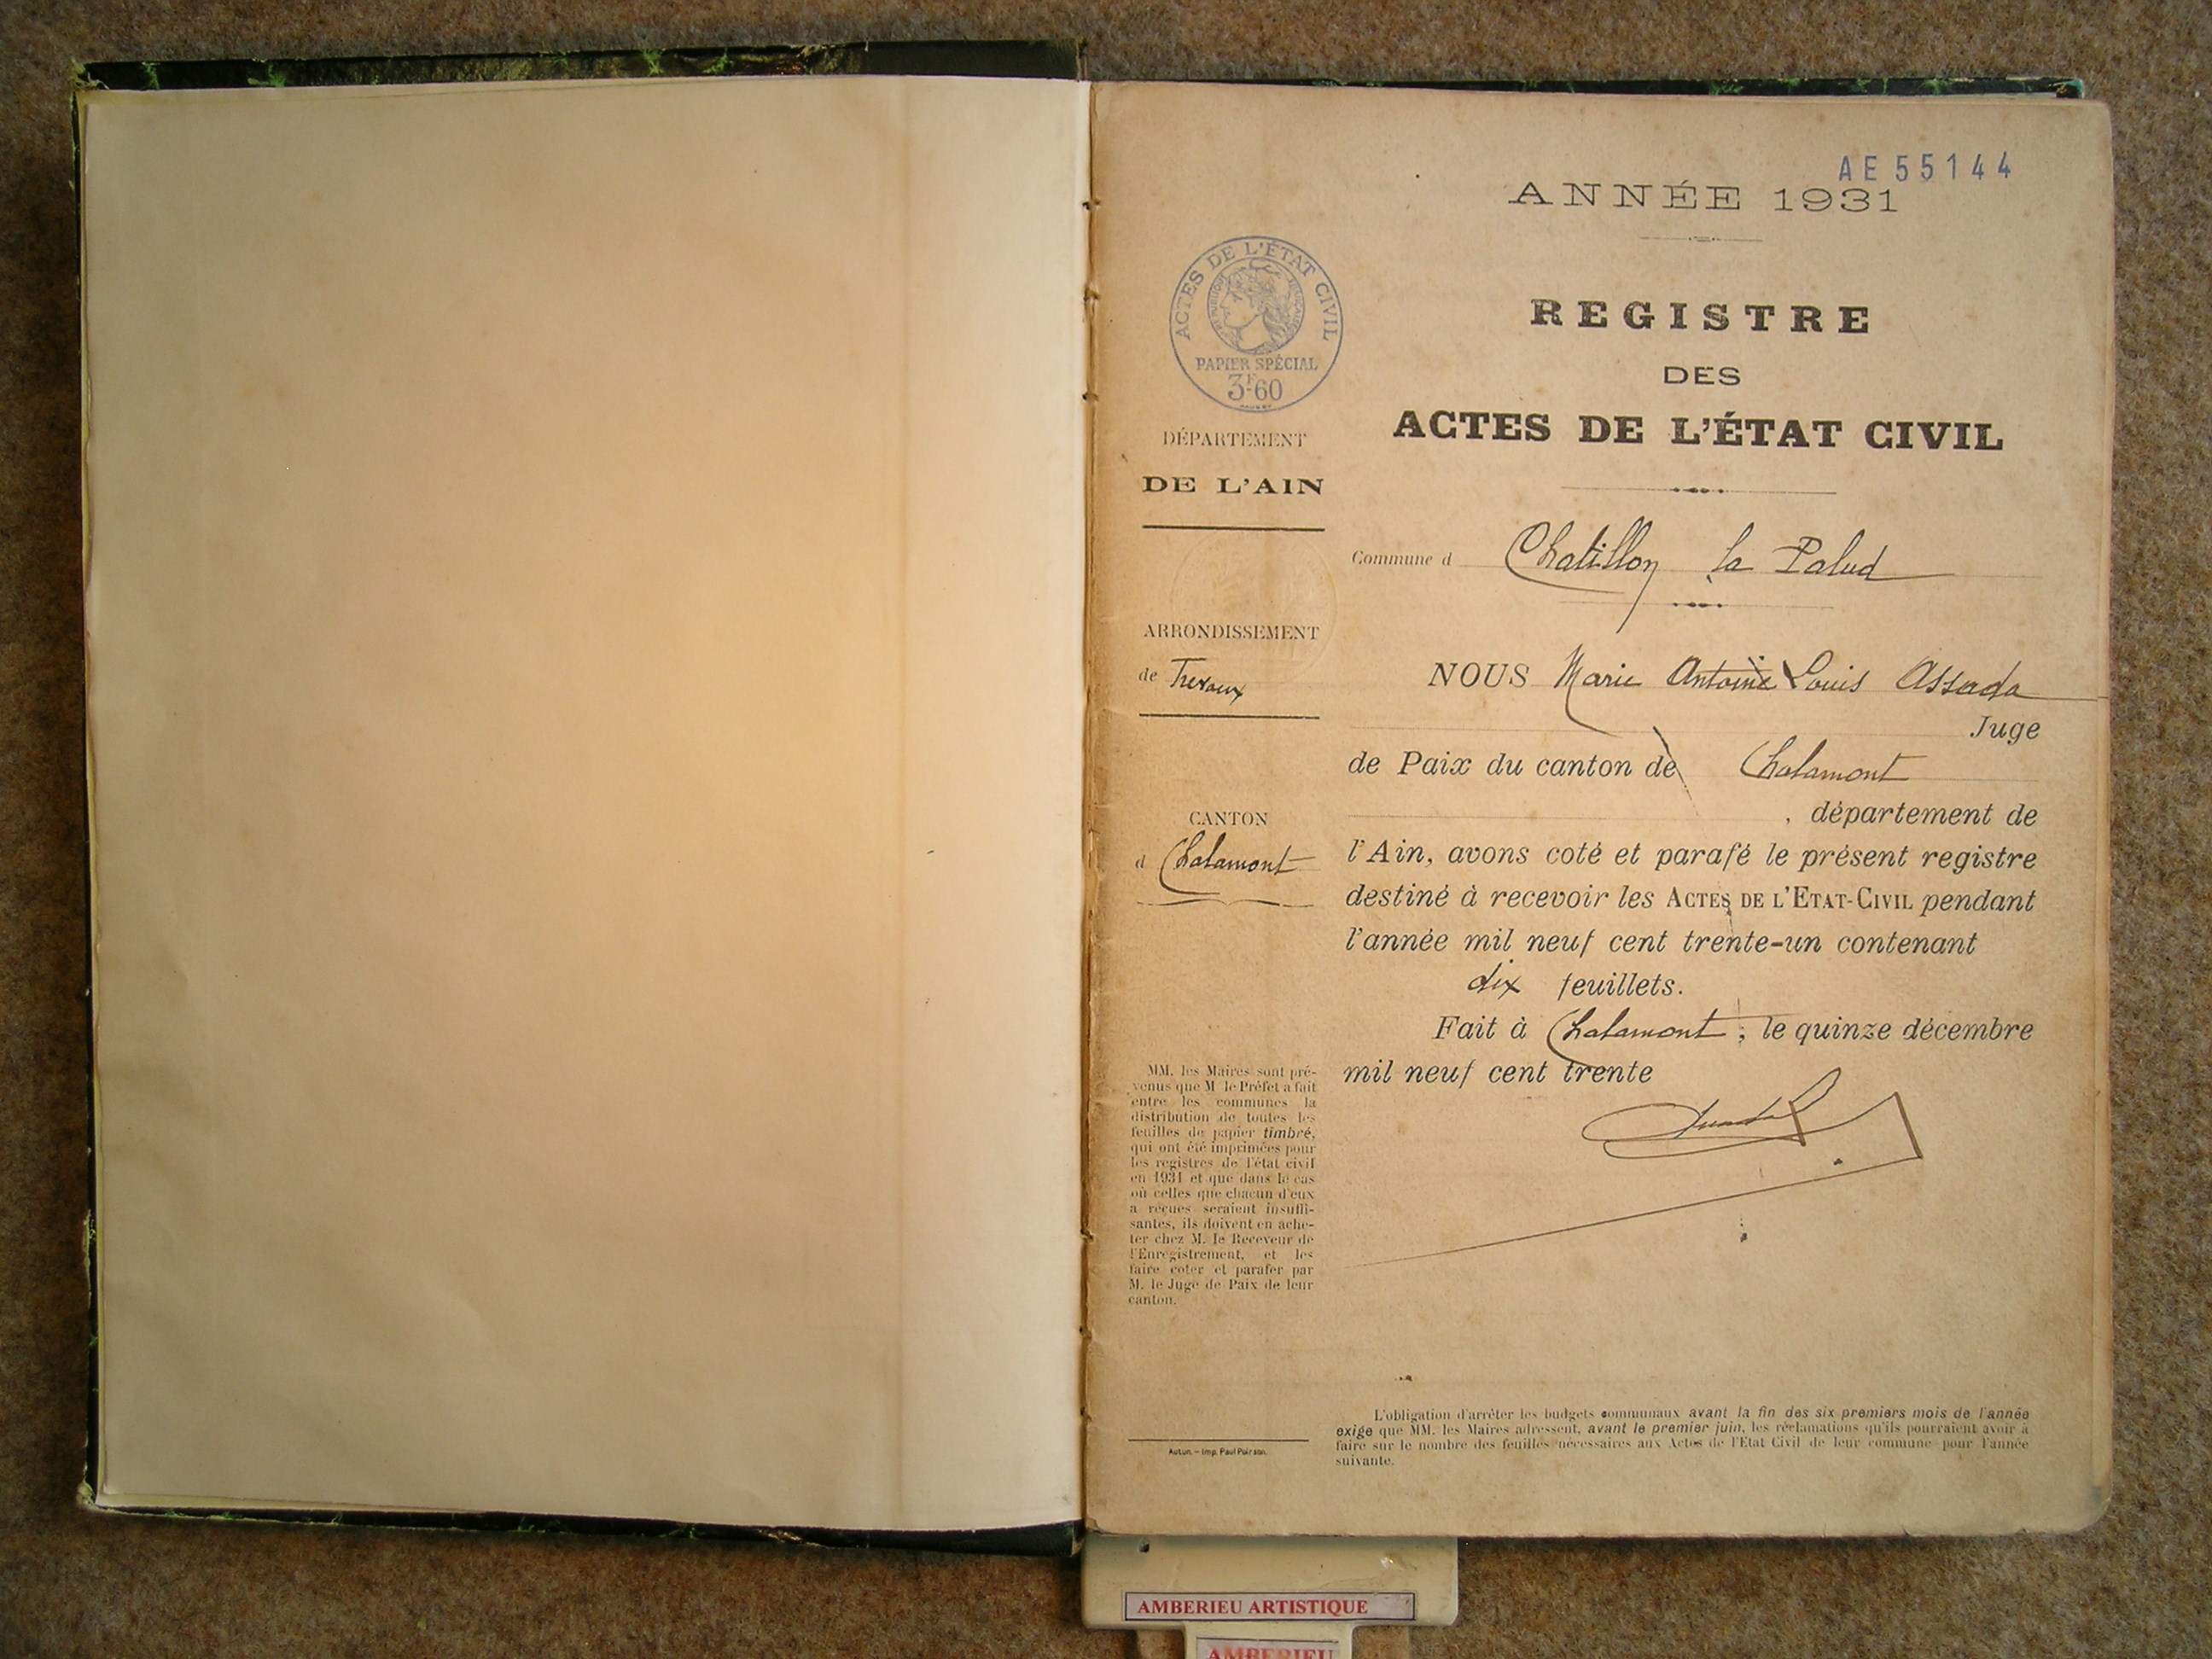 AE 55144
ANNÉE 1931
ACTES DE L'ÉTAT CIVIL
RÉPUBLIQUE FRANÇAISE
PAPIER SPÉCIAL
3F60
REGISTRE
DES
ACTES DE L'ÉTAT CIVIL
DÉPARTEMENT
DE L'AIN
Commune d Chatillon la Palud
ARRONDISSEMENT
de Trevoux
NOUS Marie Antoine Louis Assada
Juge
de Paix du canton de Chalamont
, département de
CANTON
d Chalamont
l'Ain, avons coté et parafé le présent registre
destiné à recevoir les ACTES DE L'ETAT-CIVIL pendant
l'année mil neuf cent trente-un contenant
dix feuillets.
Fait à Chalamont, le quinze décembre
mil neuf cent trente
MM. les Maires sont pré-
venus que M. le Préfet a fait
entre les communes la
distribution de toutes les
feuilles de papier timbré,
qui ont été imprimées pour
les registres de l'état civil
en 1931 et que dans le cas
où celles que chacun d'eux
a reçues seraient insuffi-
santes, ils doivent en ache-
ter chez M. le Receveur de
l'Enregistrement, et les
faire coter et parafer par
M. le Juge de Paix de leur
canton.
Autun. – Imp. Paul Poirson.
L'obligation d'arrêter les budgets communaux avant la fin des six premiers mois de l'année
exige que MM. les Maires adressent, avant le premier juin, les réclamations qu'ils pourraient avoir à
faire sur le nombre des feuilles nécessaires aux Actes de l'Etat Civil de leur commune pour l'année
suivante.
AMBERIEU ARTISTIQUE
AMBERIEU